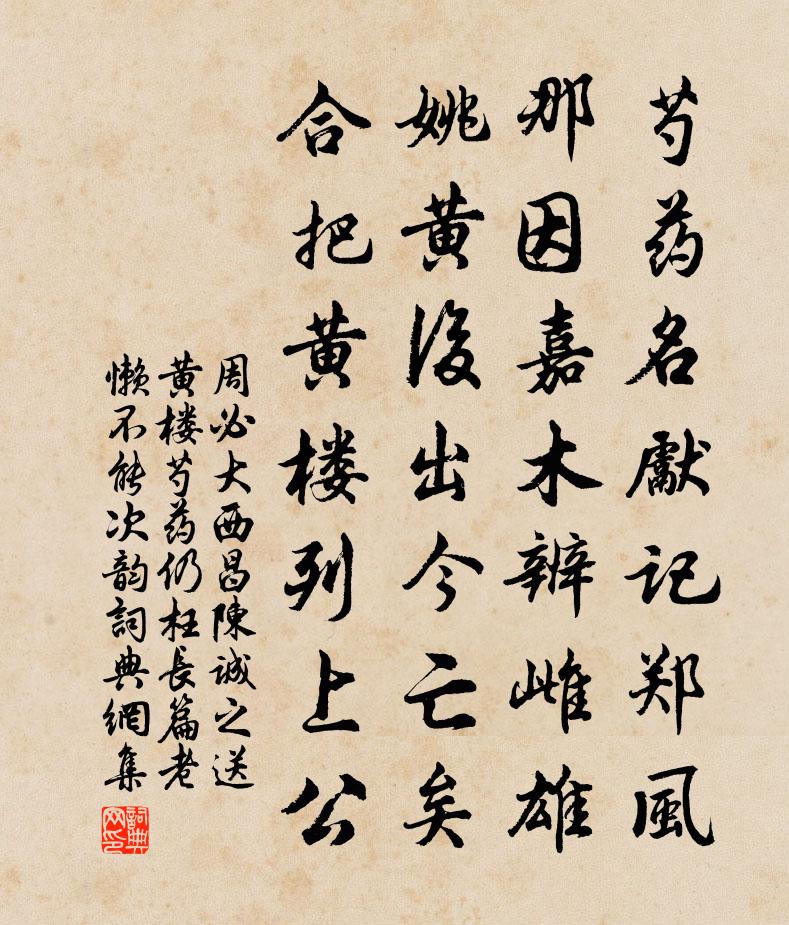 芍药名獻记郑風
那因嘉木辨雌雄
姚黄後出今亡矣
合把黄楼列上公
周必大西昌陳诚之送
黄楼芍药仍枉長篇老
懒不能次韵詞典網集
詞典
网印